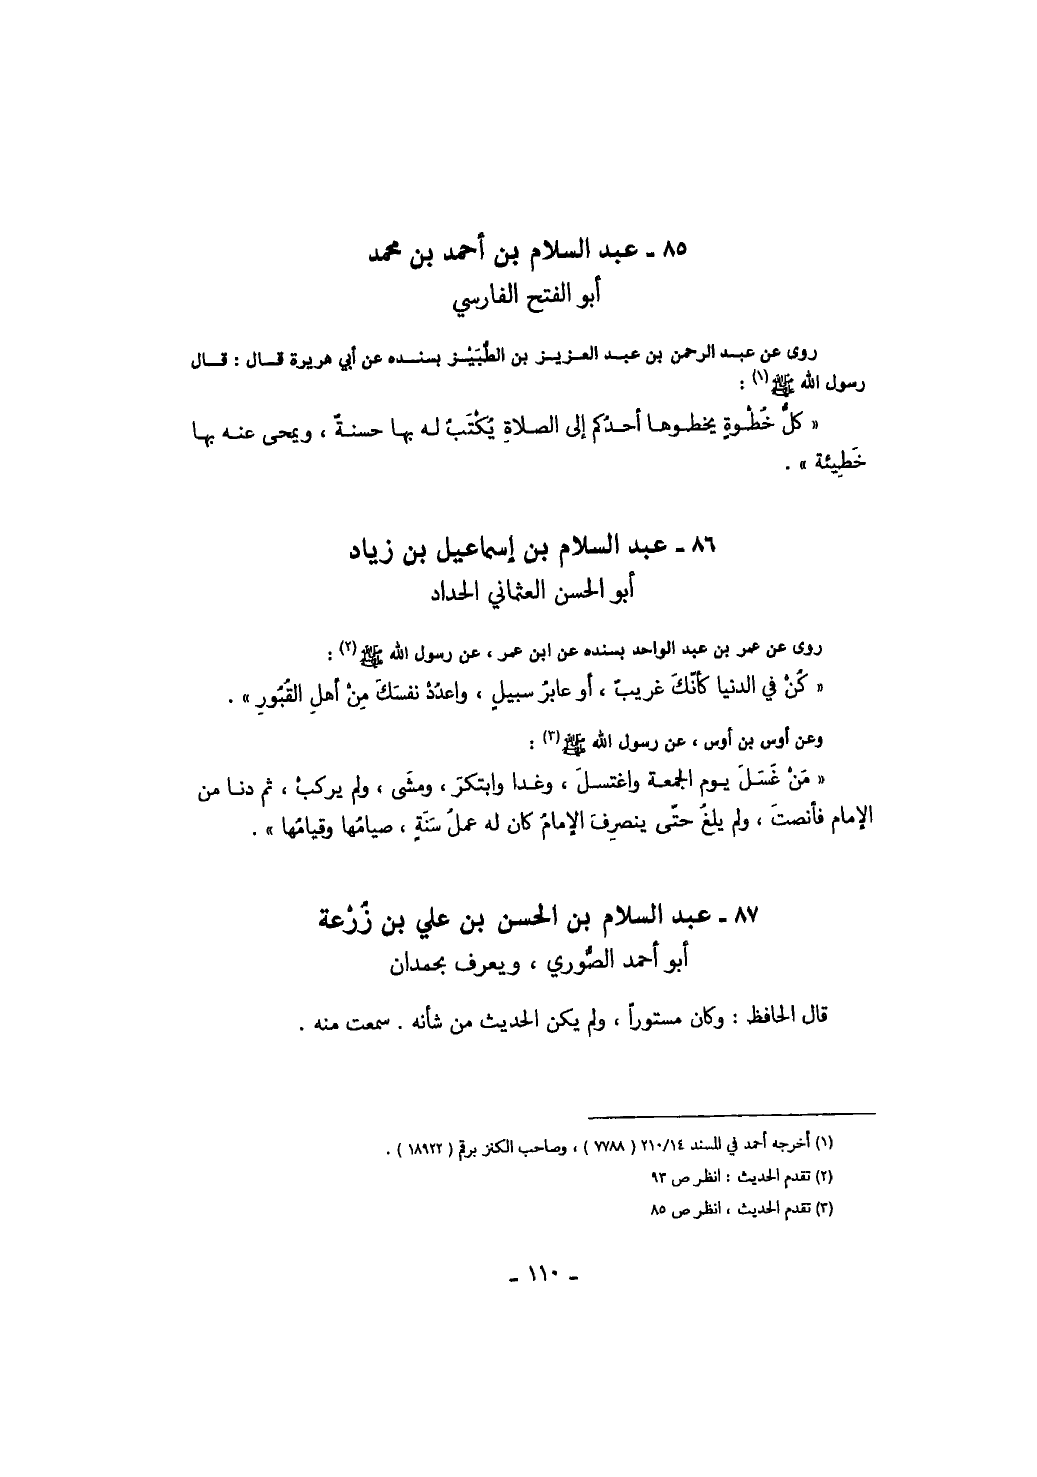 ٨٥ ـ عبد السلام بن أحمد بن محمد
أبو الفتح الفارسي
روى عن عبد الرحمن بن عبد العزيز بن الطُّبَيْز بسنده عن أبي هريرة قال : قال
رسول الله ﷺ(١) :
« كلُّ خُطْوةٍ يخطوها أحدُكم إلى الصلاةِ يُكْتَبُ له بها حسنةٌ ، ويمحى عنه بها
خَطِيئة » .
٨٦ ـ عبد السلام بن إسماعيل بن زياد
أبو الحسن العثماني الحداد
روى عن عمر بن عبد الواحد بسنده عن ابن عمر ، عن رسول الله ﷺ(٢) :
« كُنْ في الدنيا كأنّكَ غريبٌ ، أو عابرُ سبيلٍ ، واعدُدْ نفسَكَ مِنْ أهلِ القُبُورِ » .
وعن أوس بن أوس ، عن رسول الله ﷺ(٣) :
« مَنْ غَسَلَ يوم الجمعة واغتسلَ ، وغدا وابتكرَ ، ومشَى ، ولم يركبْ ، ثم دنا من
الإمام فأنصتَ ، ولم يلغُ حتّى ينصرِفَ الإمامُ كان له عملُ سَنَةٍ ، صيامُها وقيامُها » .
٨٧ ـ عبد السلام بن الحسن بن علي بن زُرْعة
أبو أحمد الصُّوري ، ويعرف بحمدان
قال الحافظ : وكان مستوراً ، ولم يكن الحديث من شأنه . سمعت منه .
(١) أخرجه أحمد في المسند ٢١٠/١٤ ( ٧٧٨٨ ) ، وصاحب الكنز برقم ( ١٨٩٢٢ ) .
(٢) تقدم الحديث : انظر ص ٩٣
(٣) تقدم الحديث ، انظر ص ٨٥
ـ ١١٠ ـ